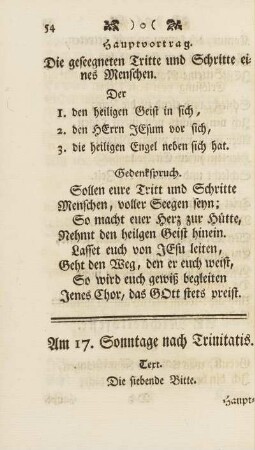 54 )o(
Hauptvortrag.
Die geseegneten Tritte und Schritte ei-
nes Menschen.
Der
1. den heiligen Geist in sich,
2. den HErrn JEsum vor sich,
3. die heiligen Engel neben sich hat.
Gedenkspruch.
Sollen eure Tritt und Schritte
Menschen, voller Seegen seyn;
So macht euer Herz zur Hütte,
Nehmt den heilgen Geist hinein.
Lasset euch von JEsu leiten,
Geht den Weg, den er euch weist,
So wird euch gewiß begleiten
Jenes Chor, das GOtt stets preist.
Am 17. Sonntage nach Trinitatis.
Text.
Die siebende Bitte.
Haupt-